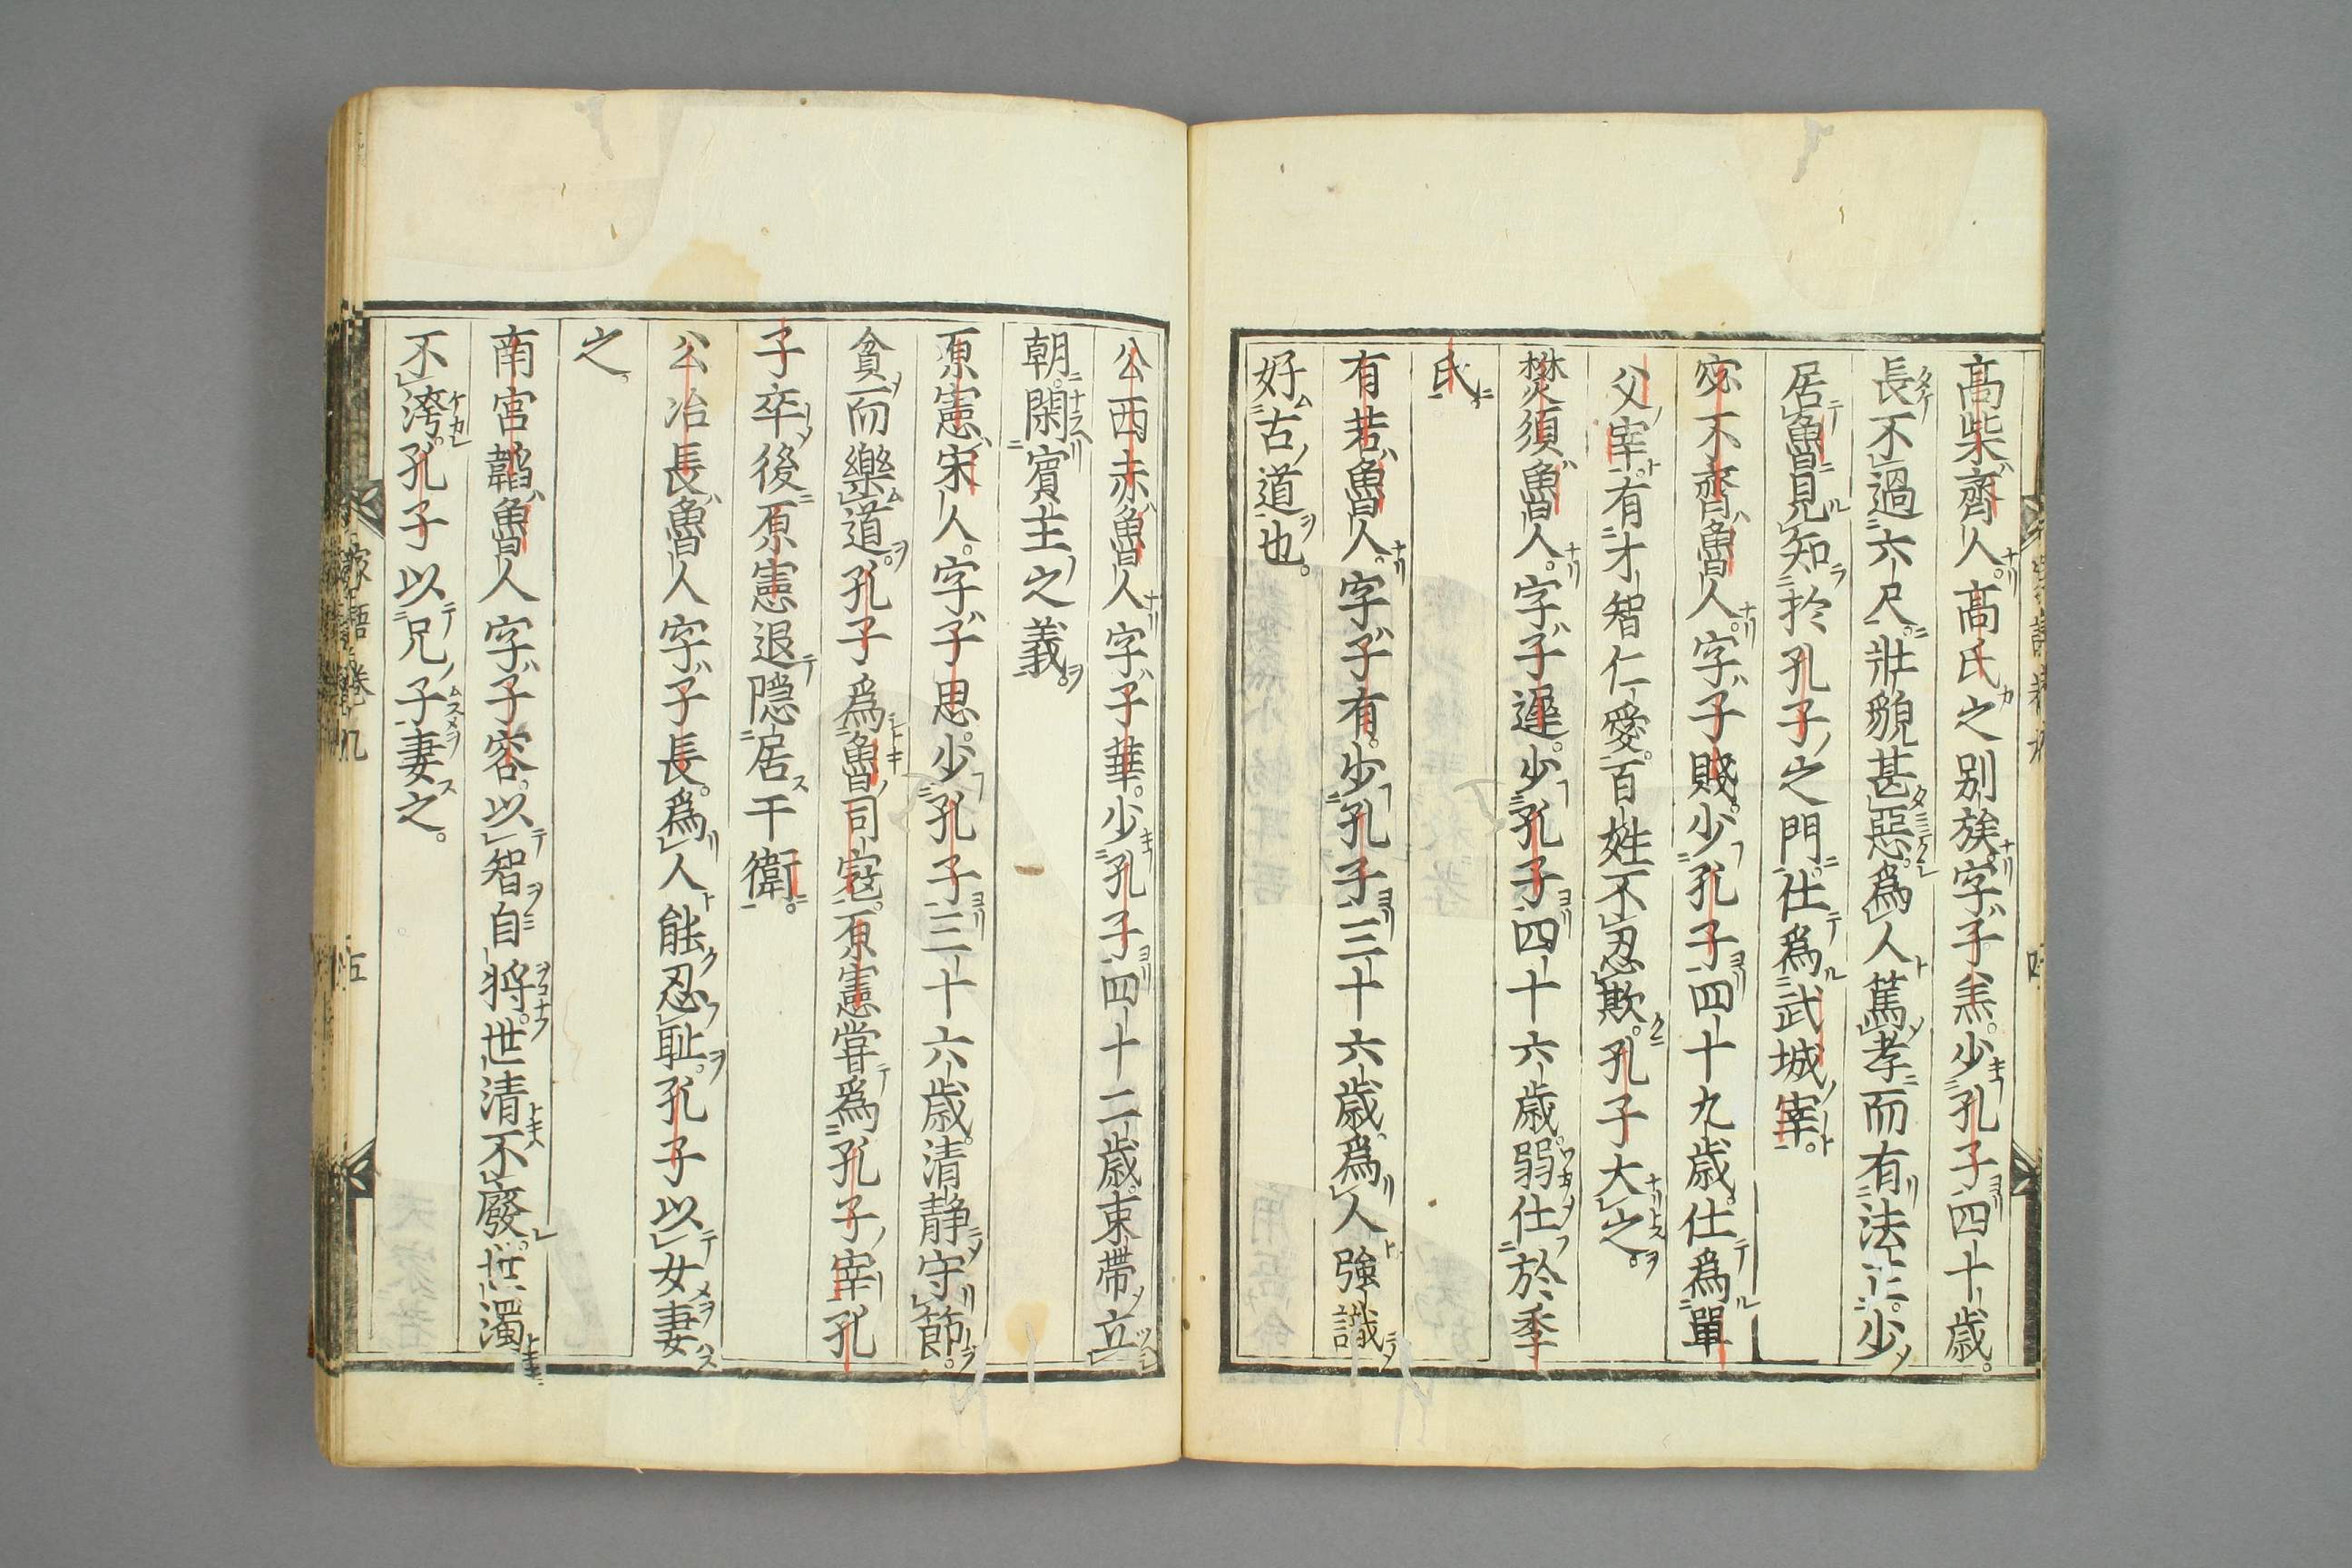 高柴齊人。高氏之別族。字子羔。少孔子四十歳。
長不過六尺。狀貌甚惡。爲人篤孝而有法正。少
居魯見知於孔子之門。仕爲武城宰。
宓不齊魯人。字子賤。少孔子四十九歳。仕爲單
父宰。有才智仁愛。百姓不忍欺。孔子大之。
樊須魯人。字子遲。少孔子四十六歳。弱仕於季
氏
有若魯人。字子有。少孔子三十六歳。爲人強識
好古道也。
公西赤魯人字子華。少孔子四十二歳。束帶立
朝。閑賓主之義。
原憲宋人。字子思。少孔子三十六歳。清静守節。
貧而樂道。孔子爲魯司寇。原憲嘗爲孔子宰孔
子卒後原憲退隱居于衛。
公冶長魯人字子長。爲人能忍恥。孔子以女妻
之。
南宮韜魯人字子容。以智自將。世清不廢。世濁
不洿。孔子以兄子妻之。
家語卷九
五